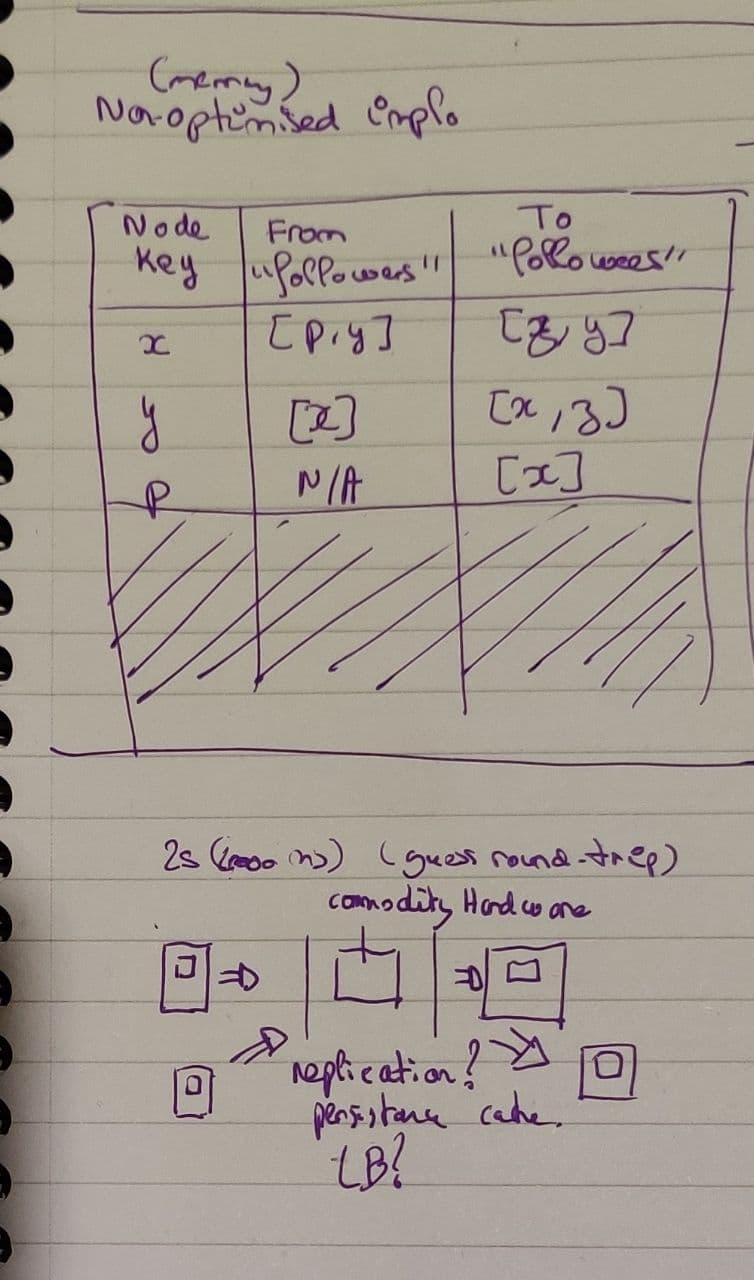 (memory)
Non-optimised implo
Node Key | From "followers" | To "followees"
x | [p, y] | [z, y]
y | [x] | [x, z]
p | N/A | [x]
2s (2000 ms) (guess round-trip)
commodity Hardware
replication?
persistence cache.
LB?